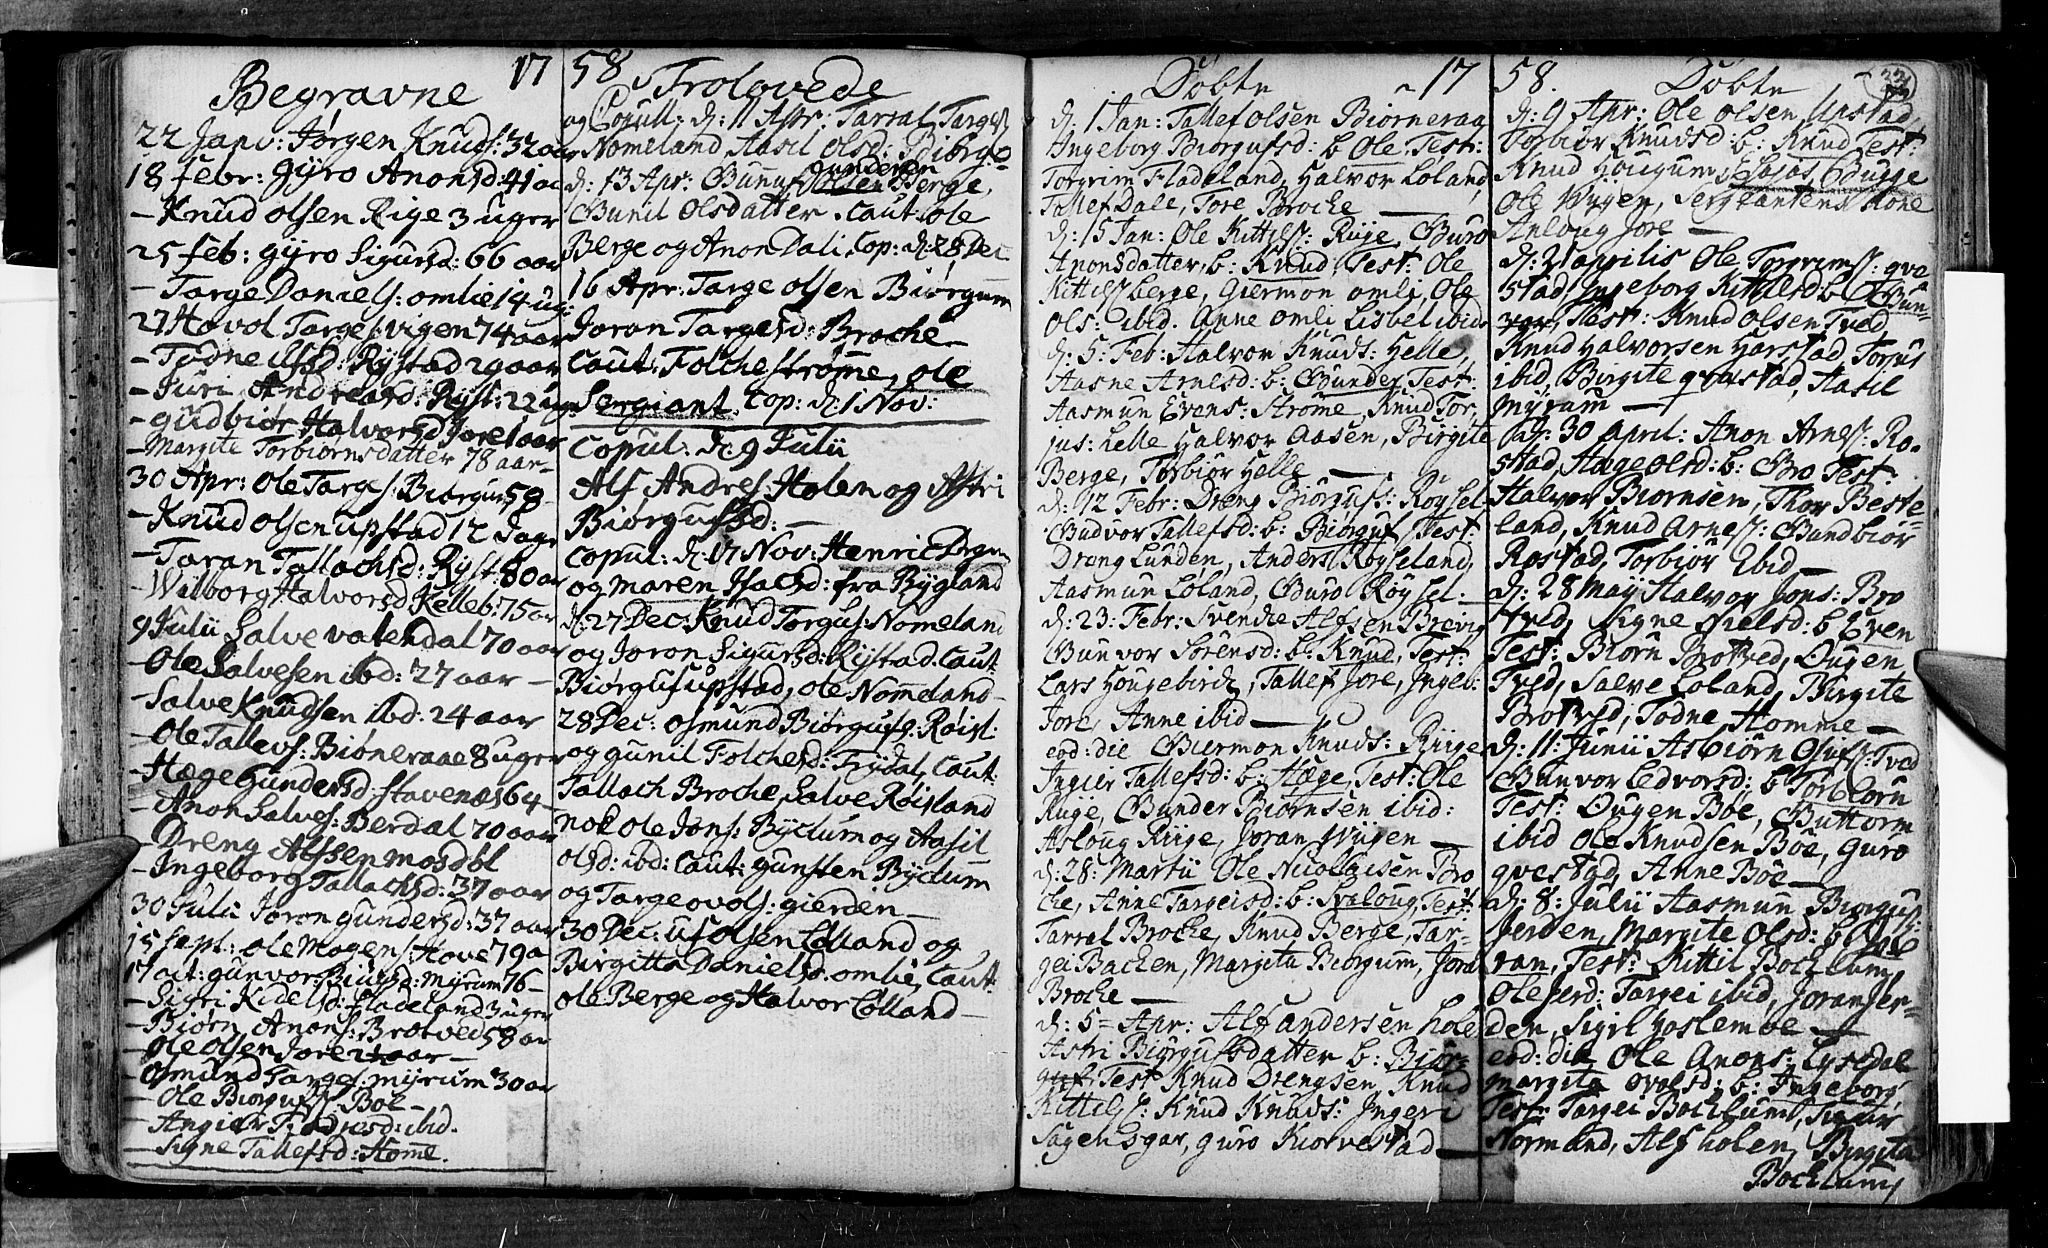 Begravne
22 Janv: Jørgen Knuds: 32 aar
18 febr: Gÿro Anonsd: 41 aar
- Knud olsen Rige 3 uger
25 feb: gÿro Sigursd: 66 aar
- Targe Daniels: omlie 14 ug:
27 Hovol Targes: vigen 74 aar
- Todne Ilfsd: Rÿstad 29 aar
- Juri Andreasd: Rÿst: 22
- Gudbiør Halvorsd Jore 1 aar
- Margite Torbiørnsdatter 78 aar -
30 Apr: Ole Targes: Biørgum 58 -
- Knud olsen upstad 12 Dage
- Taran Tallachsd: Rÿst: 80 aar
- Wilborg Halvorsd Kelleb: 75 aar
9 Julii Salve valendal 70 aar
- Ole Salvesen ibd: 27 aar -
- Salve Knudsen ibd: 24 aar
- Ole Tallevs: Biøneraae 8 uger
- Hæge Gundersd stavenæs 64 -
- Anon Salves: Berdal 70 aar
- Dreng Alfsen mosdøl
- Ingeborg Tallachsd: 37 aar
30 Julii Joron gundersd: 37 aar
15 Sept: ole Mogens: Hove 79 a
17 oct: gunvor Biusd: mÿrum 76 -
- Sigri Kidelsd: Fladeland 3 uger
- Biørn Anons: Brotved 58 aar
- Ole olsen Jore 24 aar -
- Osmund Targes: mÿrum 30 aar
- Ole Biørgufs: Boe -
- Angier Tiødresd: ibid.
- Signe Tallefsd: Home.
17 58 Trolovede
og Copull: d: 11 Apr: Tarral Targes
Nomeland Aasil olsd: Biørgo
gundersen
d: 13 Apr: Gunuf Olsen Berge,
Gunil Olsdatter. caut: ole
Berge og Anon Dali, Cop: d: 28 Dec
16 Apr: Targe olsen Biørgum
Joran Targesd: Broche
Caut: Folche strømme, ole
Sergiant. Cop: d: 1 Nov:
Copul: d: 9 Julii
Alf Andres: Holen og Astri
Biørgufsd: -
Copul: d: 17 Nov: Henric
og maren Isachsd: fra Bÿgland
d: 27 Dec: Knud Torgus: Nomeland
og Joron Sigursd: Rÿstad. Caut:
Biørguf upstad, ole Nomeland -
28 Dec: osmund Biørgufs: Røisl:
og gunil Folchesd: Frÿdal, Caut:
Tallach Broche, Salve Røisland
nok ole Jons: Bÿclum og Aasil
olsd: ibd: Caut: gunsten Bÿclum
og Targe ovols: gierden -
30 Dec: uf olsen Lølland og
Birgitta Danielsd. omlie, Caut:
ole Berge og Halvor Lølland -
Döbte
d: 1 Jan: Tallef olsen Biørneraa
Ingeborg Biørgufsd: b Ole. Test:
Torgrim Fladeland, Halvor Løland,
Tallef Dale, Tore Broche -
d: 15 Jan: Ole Kittels: Ruge, Guro
Anonsdatter, b: Knud, Test: Ole
Kittels: berge, Giermon omli, Ole
Ols: ibid. Anne omli Lisbet ibid:
d: 5 Feb: Halvor Knuds: Helle,
Aasne Arnesd: b: Gunder, Test:
Aasmun Evens: Strøme, Knud Tor,
jus: Helle Halvor Aasen, Birgite
Berge, Torbiør Helle -
d: 12 Febr: Dreng Biørgufs: Røysel
Gudvor Tallefsd: b: Biørguf, Test:
Drong Lunden, Anders Røyseland,
Aasmun Løland, Guro Røysel:
d: 23. Febr: Svenche Alfsen Brevig
Gunvor Sørensd: b: Knud, Test:
Lars Hougebirch, Tallef Jore, Ingeb:
Jore, Anne ibid -
eod: die Giermon Knuds: Riige
Ingier Tallefsd: b: Hæge, Test: Ole
Ruge, Gunder Biørnsen ibid:
Asloug Riige, Joran Wiigen -
d: 28: Martii Ole Nicolaisen Bro
che, Anne Targeisd: b: Svaloug, Test:
Tarral Broche, Knud Berge, Tar-
gei Bachen, Margita Biørgum, Jora
Broche -
d: 5= Apr: Alf andersen hole
Astri Biørgufsdatter b: Biør-
guf Test Knud Drengsen, Knud
Kittils: Knud Knuds: Ingeri
Sagensgar, Guro Kiørvestad -
17 58. Döbte
d: 9 Apr: Ole Olsen Upstad,
Torbiør Knudsd: b: Knud Test:
Knud Hougum,
Ole Wiigen, Sergeantens Kone
Anloug Jore -
d: 21 aprilis Ole Torgrims: qve
stad, Ingeborg Kittilsd: b: Gun-
vor, Test: Knud Olsen Tved,
Knud Halvorsen Harstad, Torius
ibid, Birgite qvestad, Aasil
Mÿrum -
d: 30 April: Anon Arnes: Ro-
stad, Hæge Olsd: b: Bro Test:
Halvor Biørnsen, Thor Beste-
land, Knud Arnes: Gundbiør
Rostad, Torbiør Ibid -
d: 28 Maÿ Halvor Jons: Bro
tved, Signe Nielsd: b: Even
Test: Biørn Brotved, Ougen
Tved, Salve Løland, Birgite
Brotved, Todne Homme -
d: 11: Junii Asbiørn Olufs: Tved
Gunvor Edvorsd: b Torbiørn
Test: Ougen Böe, Guttorm
ibid Ole Knudsen Böe, Guro
qvestad, Anne Böe -
d: 8: Julii Aasmun Biørgufs:
Jerden, Margite Olsd: b
ran, Test: Kittil Bochlum,
Ole Jerd: Targei ibid, Joran Jer-
den, Sigil Hoslemoe -
eod: die, Ole Anons: Lysedal
margita ovolsd: b: Ingeborg,
Test: Targei Bochlum, Sigur
Normand, Alf holen, Birgita
Bochlum,